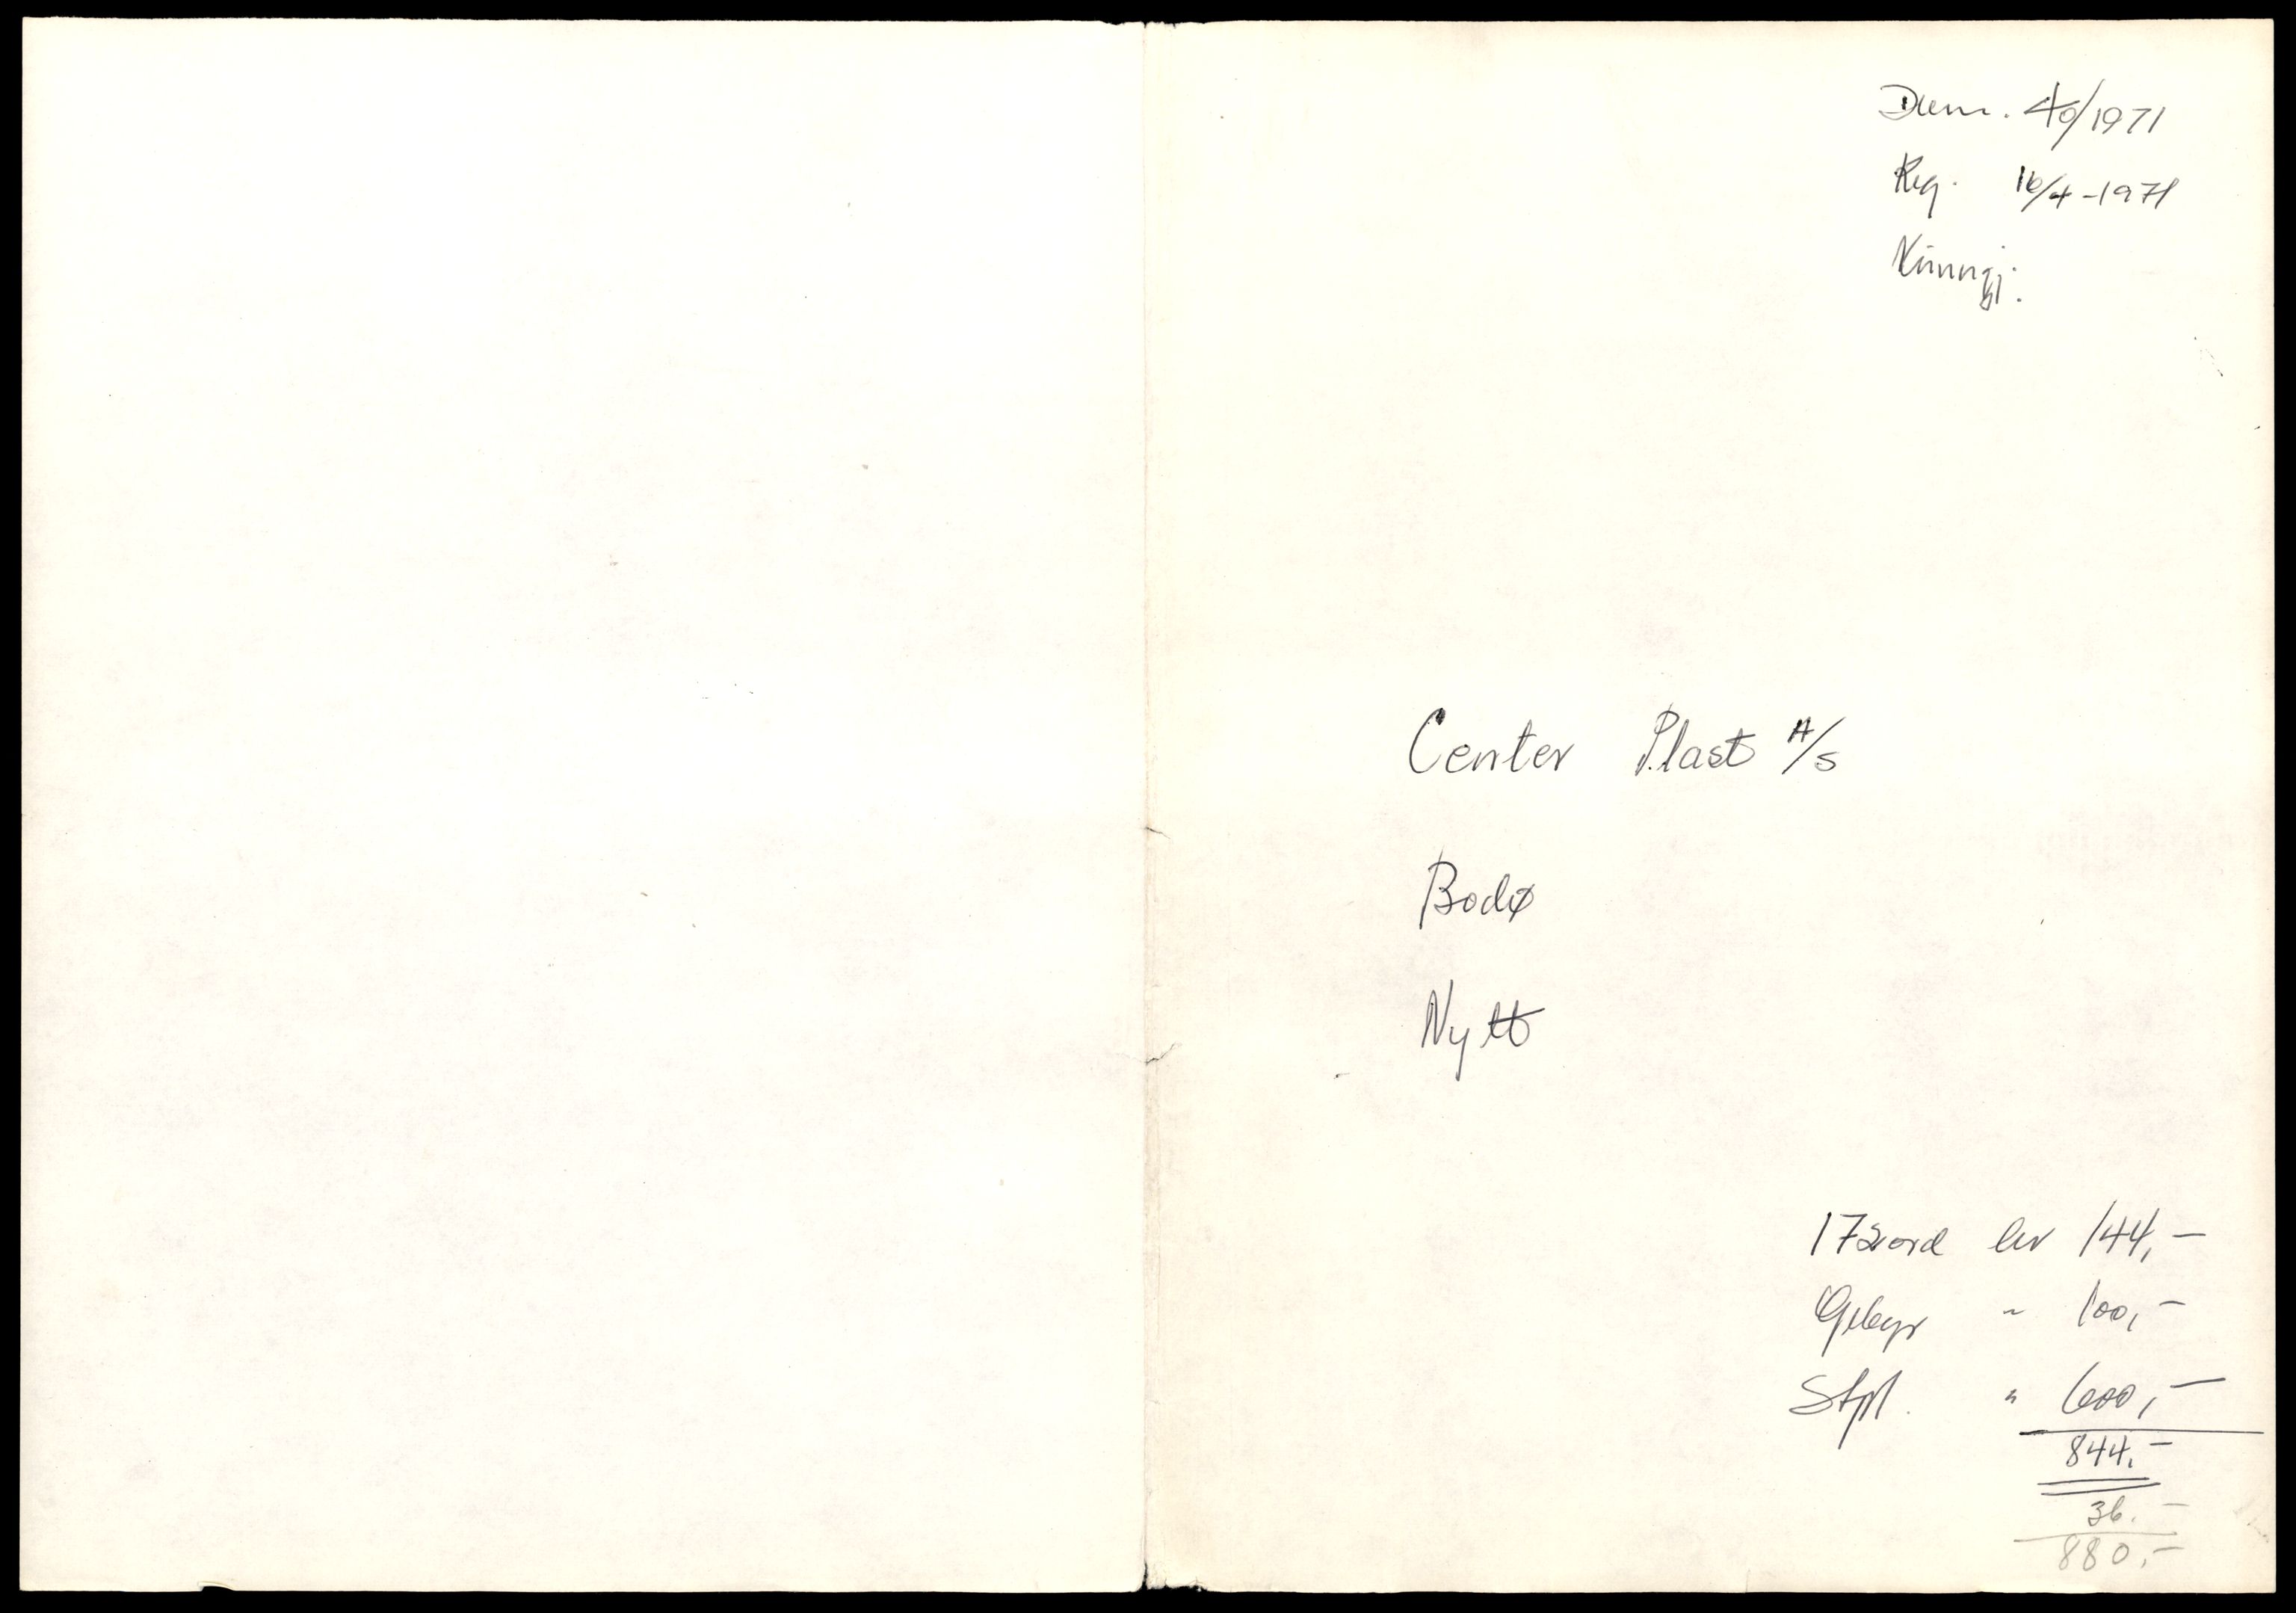 Dnr. 40/1971
Reg. 16/4-1971
Kunngj.
Center Plast A/S
Bodø
Nytt
172 ord kr 144,-
Gebyr " 100,-
Stpl. " 600,-
844.-
36.-
880,-